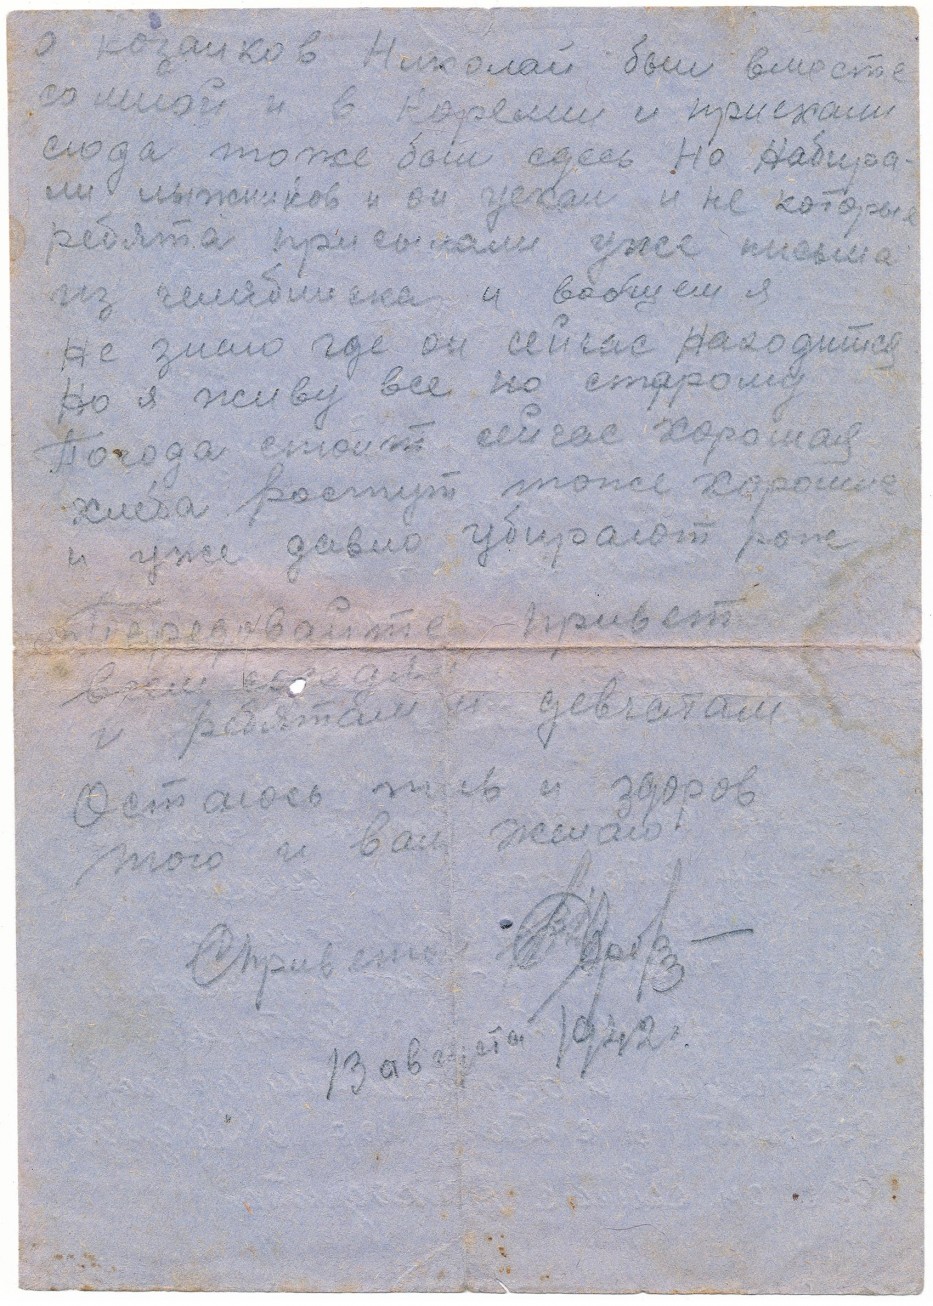 а козаков Николай был вместе
со мной и в Карелии и приехали
сюда тоже был сдесь Но Набира-
ли лыжников и он уехал и не которые
ребята присылали уже письма
из челябинска и вобщем я
Не знаю где он сейчас Находится
Но я живу все по старому
Погода стоит сейчас хорошая
хлеба растут тоже хорошие
и уже давно убирают рож
Передавайте привет
всем соседям
и ребятам и девчатам
Остаюсь жив и здоров
того и вам желаю
С приветом
13 августа 1942 г.